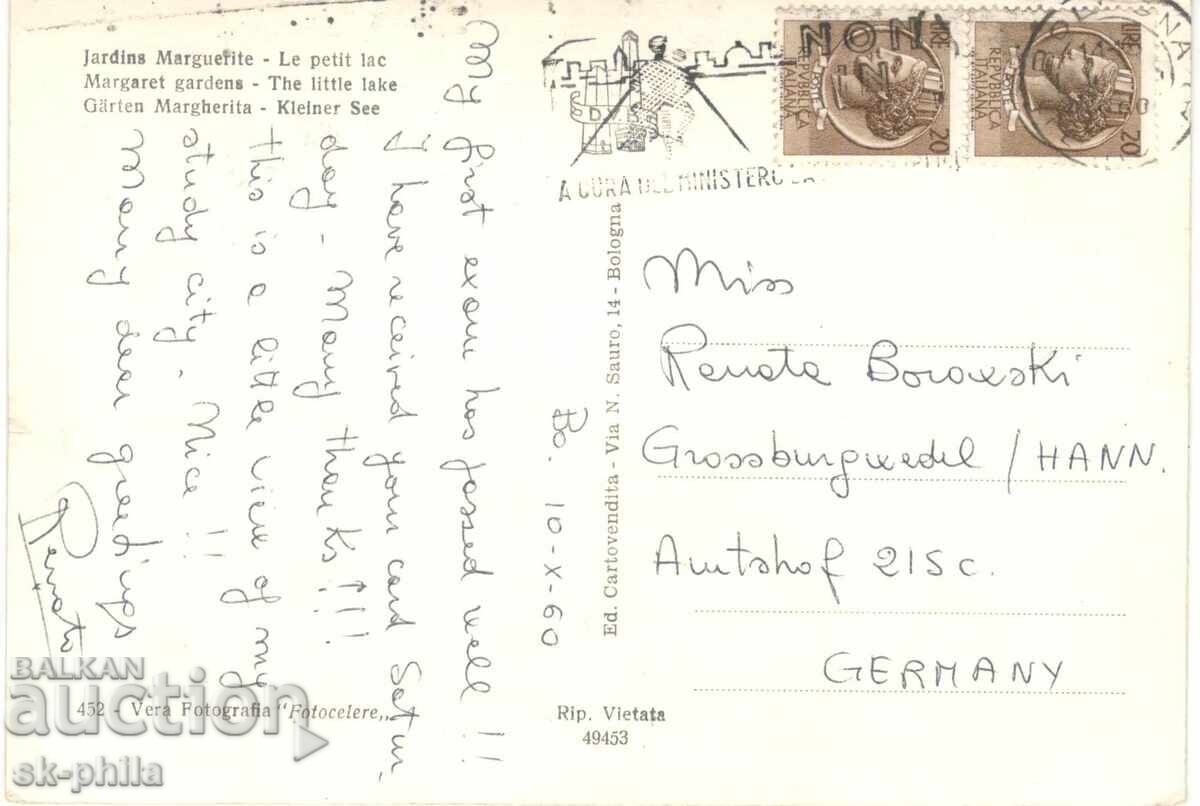 Jardins Marguerite - Le petit lac
Margaret gardens - The little lake
Gärten Margherita - Kleiner See
My first exam has passed well !!
I have received your card Satur,
day - Many thanks !!!
this is a little view of my
study city. Nice !!
Many dear greetings
Renato
Bo. 10-X-60
Ed. Cartovendita - Via N. Sauro, 14 - Bologna
A CURA DEL MINISTERO
NON
REPVBBLICA
ITALIANA
LIRE
20
REPVBBLICA
ITALIANA
LIRE
20
Miss
Renata Borowski
Grossburgwedel / HANN.
Amtshof 215c.
GERMANY
452 - Vera Fotografia "Fotocelere„
Rip. Vietata
49453
BALKAN
auction
sk-phila